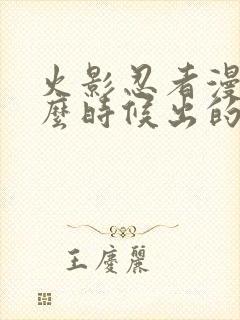 火影忍者漫
麼時候出的
王慶麗